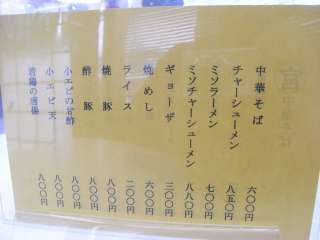 中華そば 六〇〇円
チャーシューメン 八五〇円
ミソラーメン 七〇〇円
ミソチャーシューメン 八八〇円
ギョーザ 三〇〇円
焼めし 六〇〇円
ライス 二〇〇円
焼豚 八〇〇円
酢豚 八〇〇円
小エビの甘酢 八〇〇円
小エビ天 八〇〇円
若鶏の唐揚 八〇〇円